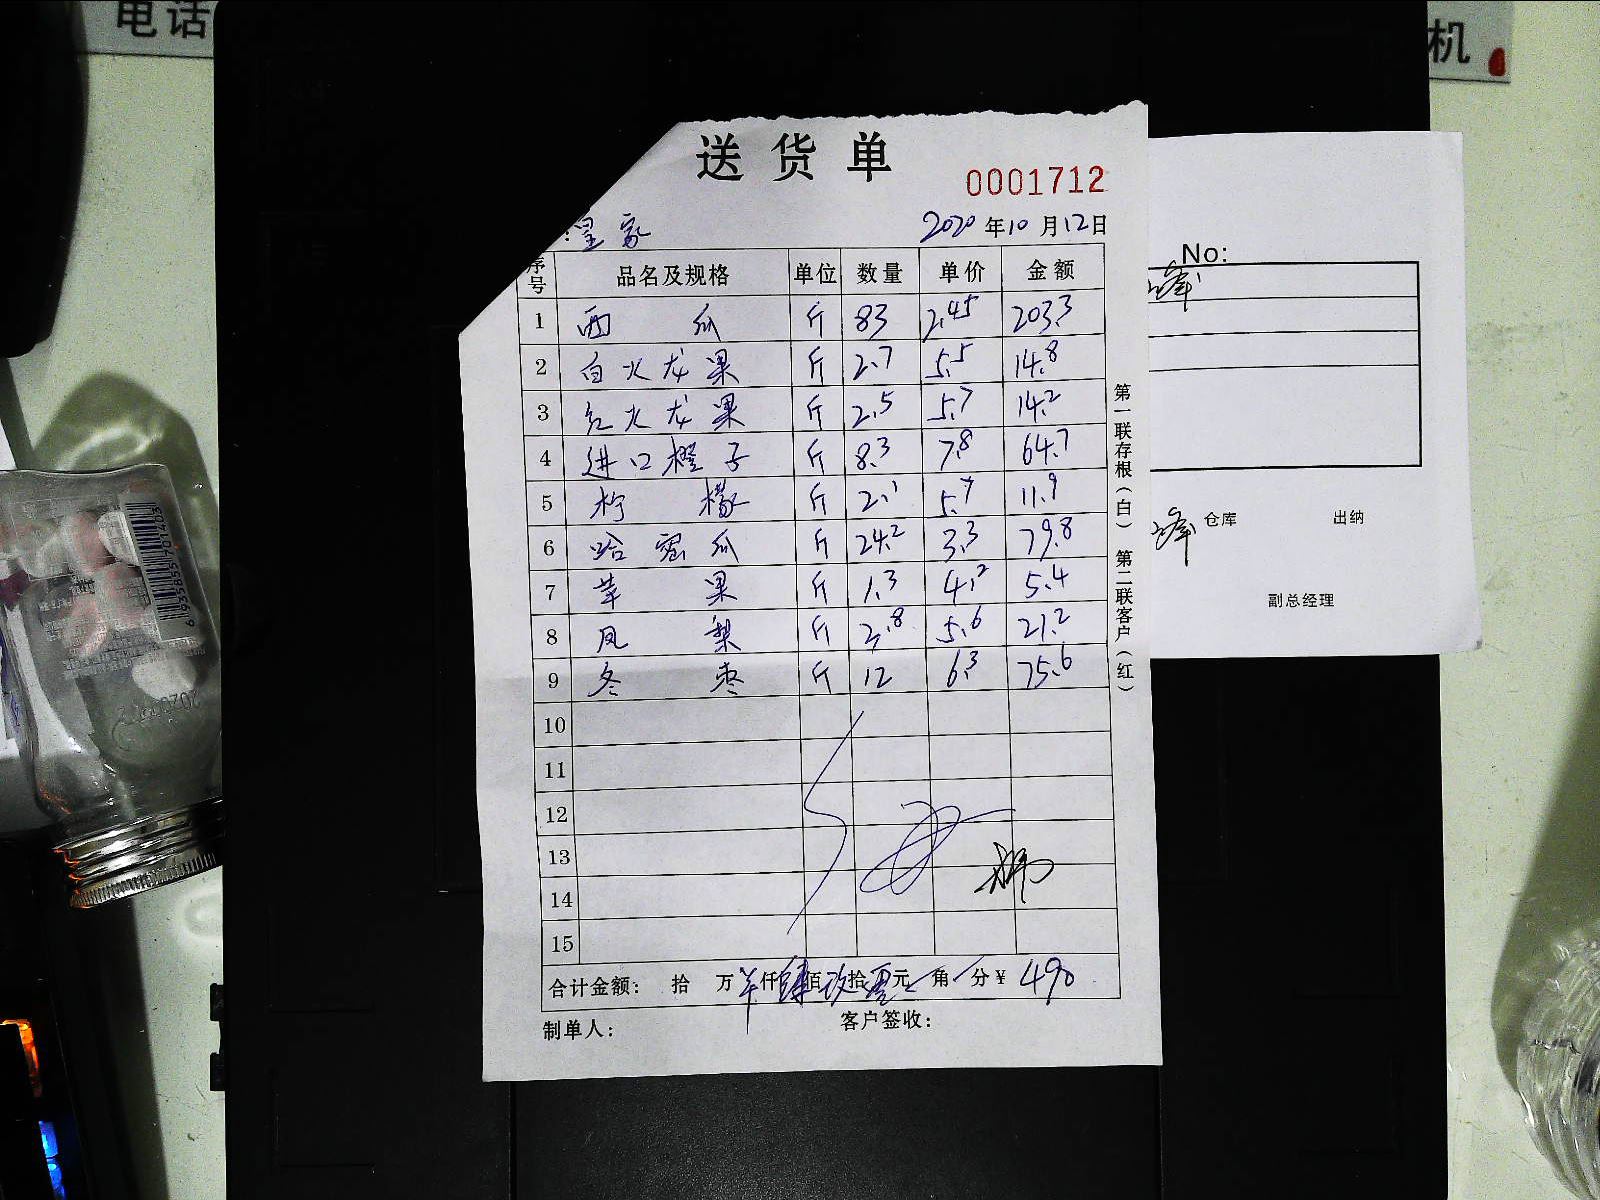 电话
机
送货单
0001712
: 皇家 2020年10月12日
序号 品名及规格 单位 数量 单价 金额
1 西瓜 斤 83 2.45 203.3
2 白火龙果 斤 2.7 5.5 14.8
3 红火龙果 斤 2.5 5.7 14.2
4 进口橙子 斤 8.3 7.8 64.7
5 柠檬 斤 2.1 5.7 11.9
6 哈蜜瓜 斤 24.2 3.3 79.8
7 苹果 斤 1.3 4.2 5.4
8 凤梨 斤 3.8 5.6 21.2
9 冬枣 斤 12 6.3 75.6
10
11
12
13
14
15
合计金额: 拾 万 仟 肆 佰 玖 拾 零 元 角 分 ¥ 490
制单人: 客户签收:
第一联存根(白) 第二联客户(红)
No:
仓库 出纳
副总经理
6935855701403